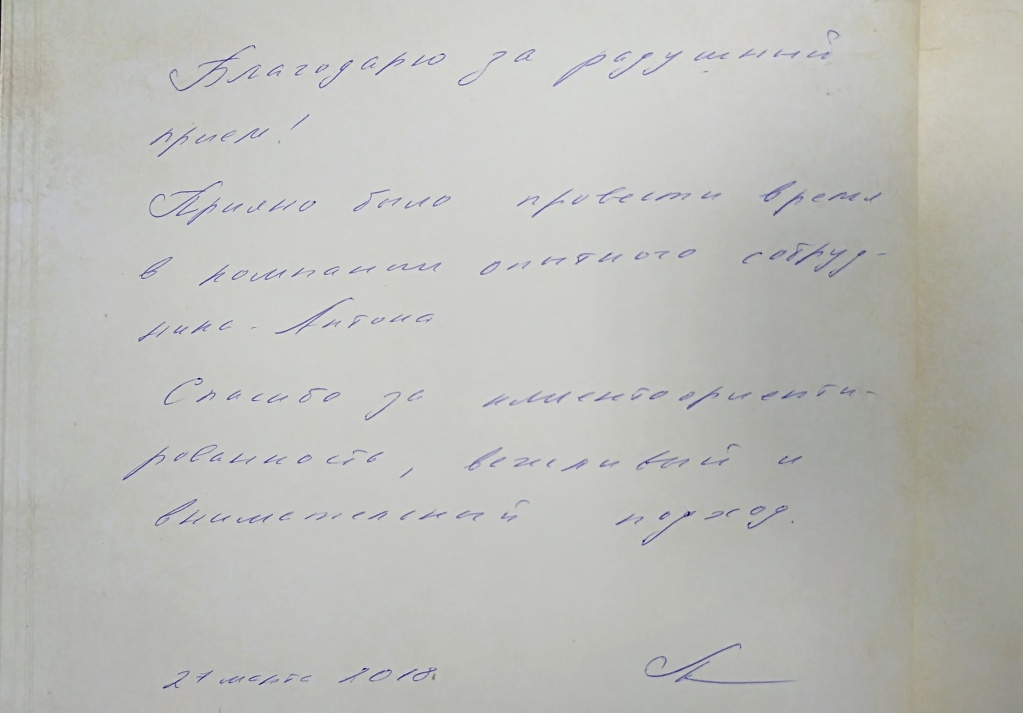 Благодарю за радушный
прием!
Прияно было провести время
в компании опытного сотруд-
ника - Антона
Спасибо за клиентоориенти-
рованность, вежливый и
внимательный подход.
21 марта 2018